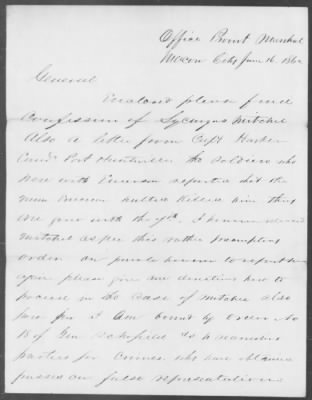 Office Provt Marshal
Macon City June 16 1862
General
Enclosed please find
Confession of Lycurgus Mitchel
Also a letter from Capt
Comdg Post Huntsville the soldiers who
were with reported that the
man killed him they
are gone with the 7th. I have
Mitchel as per his
order on parole to report
you please give me directions how to
proceed in the case of Mitchel also
how far I am bound by Order No
18 of Gen Schofield as to
parties for crimes who have obtained
passes on false representations